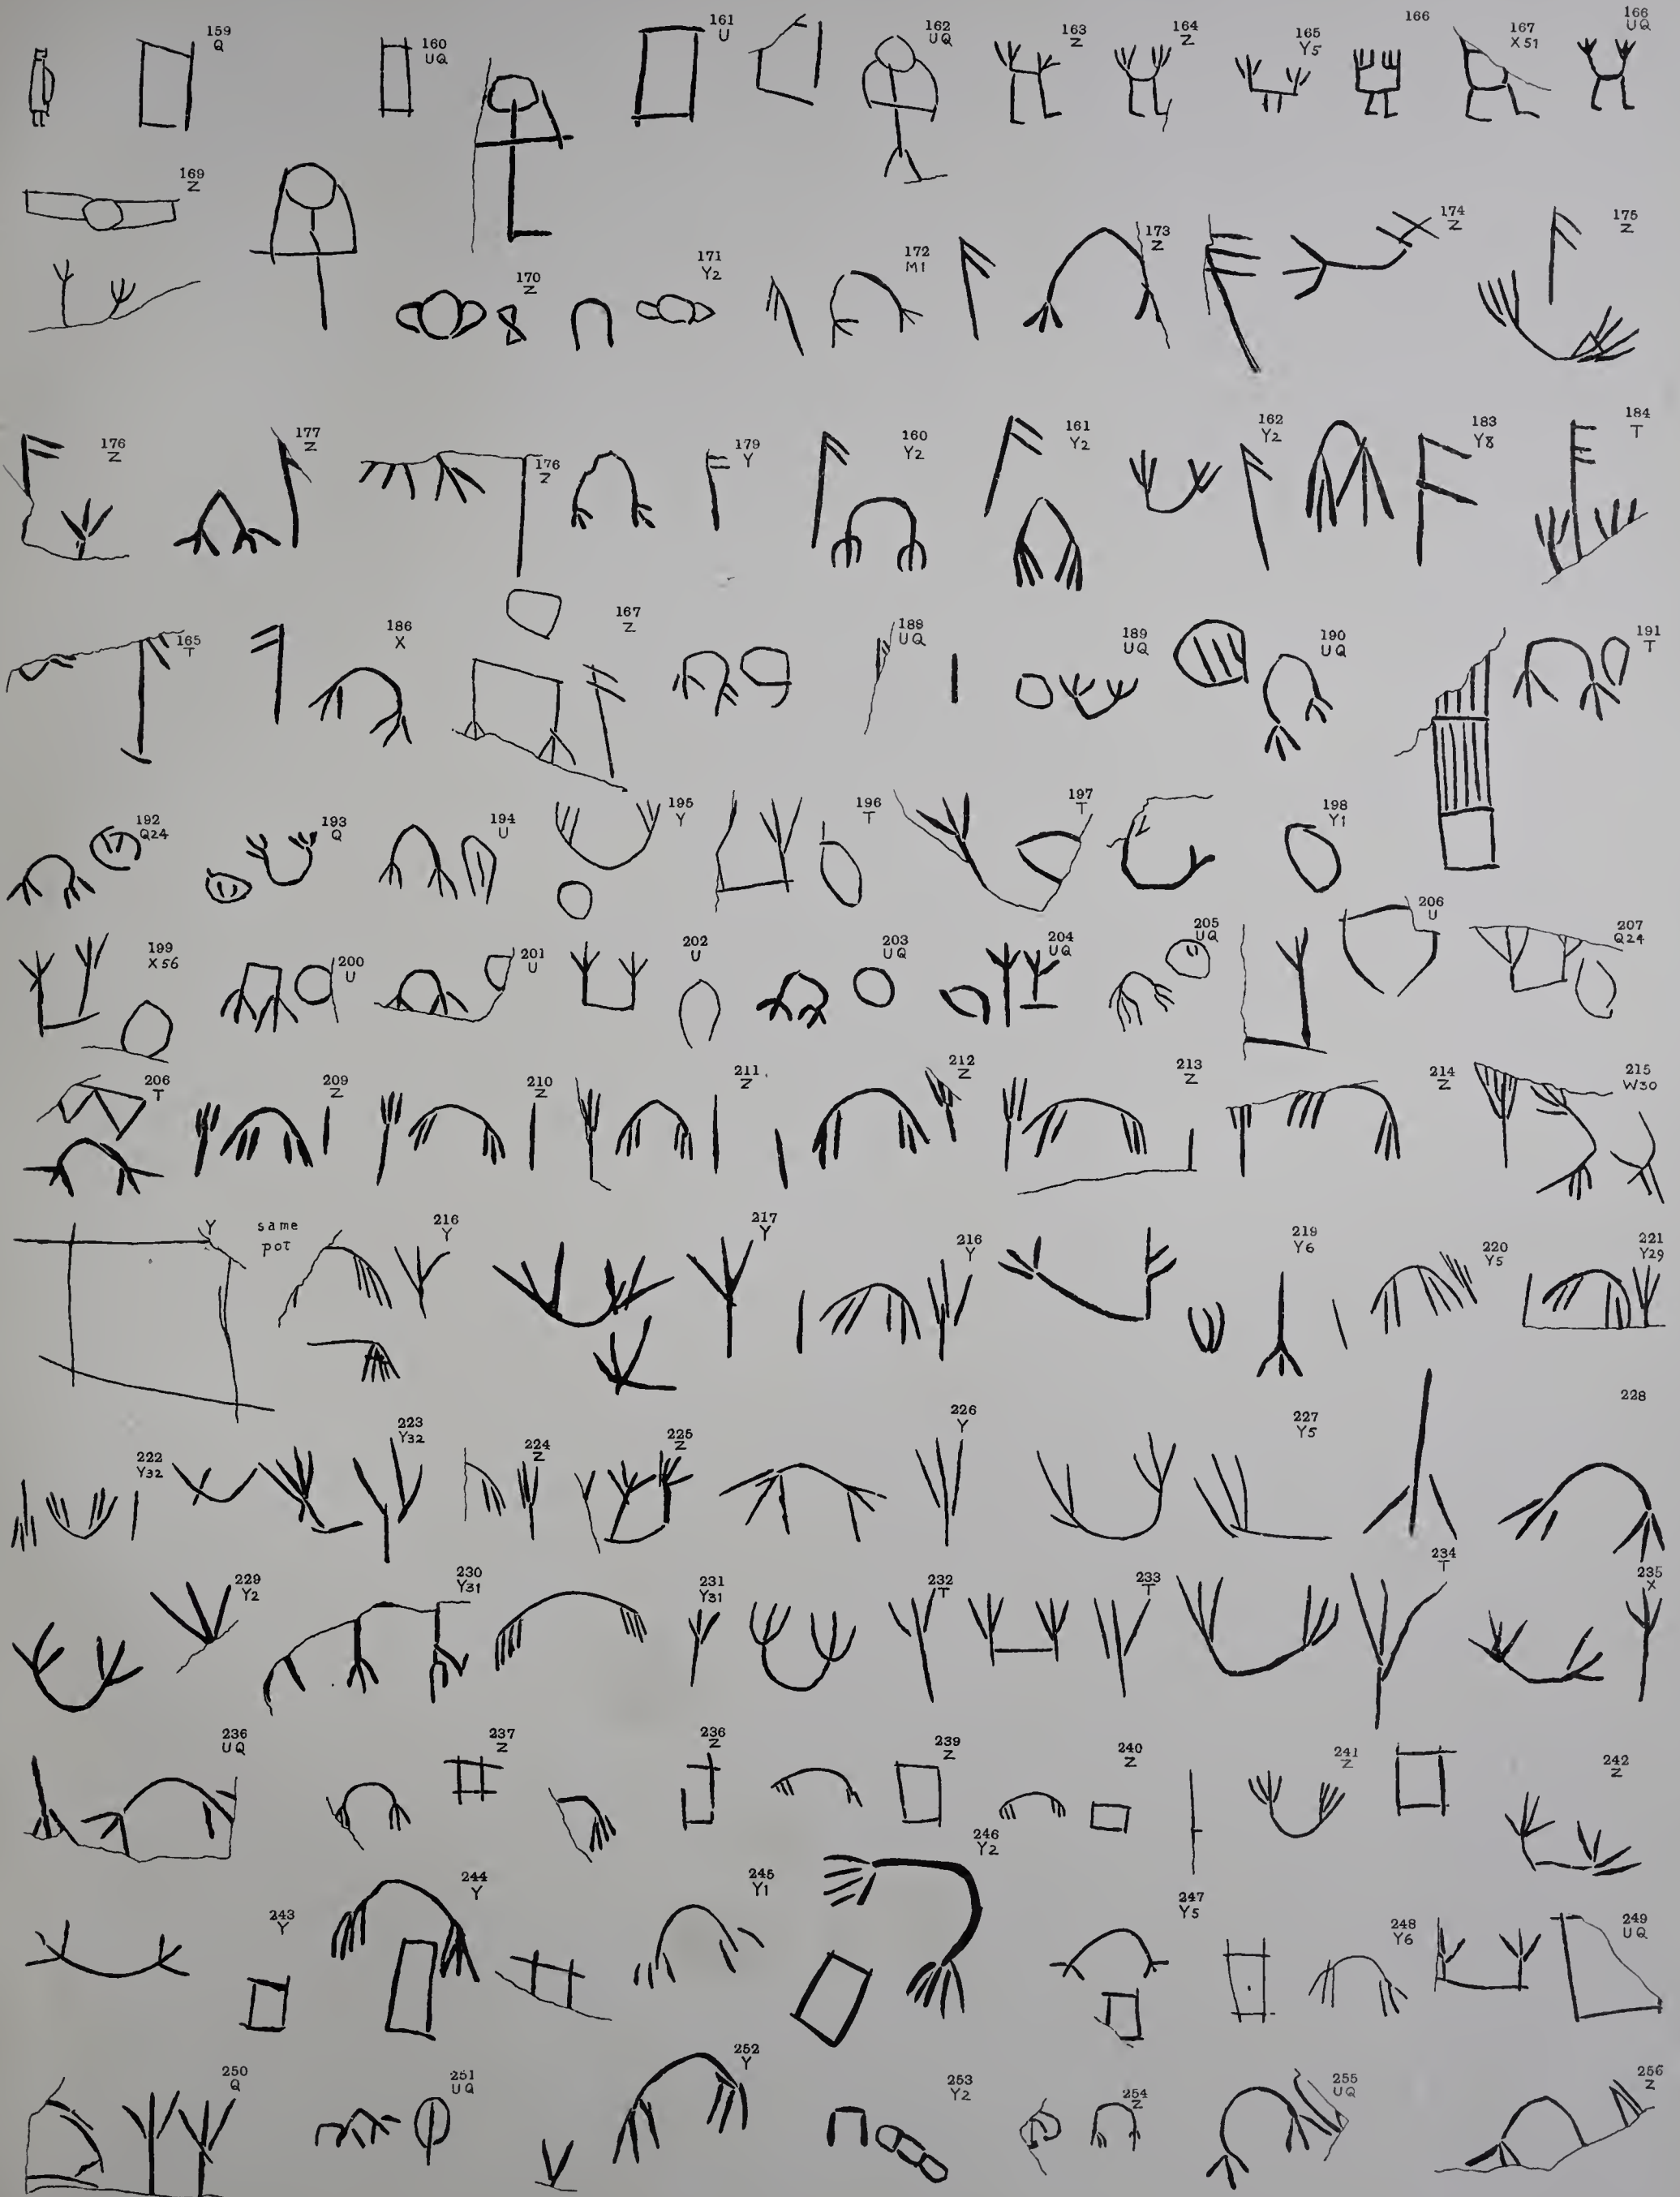 159
Q
160
UQ
161
U
162
UQ
163
Z
164
Z
165
Y5
166
167
X51
166
UQ
169
Z
170
Z
171
Y2
172
M1
173
Z
174
Z
175
Z
176
Z
177
Z
176
Z
179
Y
160
Y2
161
Y2
162
Y2
183
Y8
184
T
165
T
186
X
167
Z
188
UQ
189
UQ
190
UQ
191
T
192
Q24
193
Q
194
U
195
Y
196
T
197
T
198
Y1
199
X56
200
U
201
U
202
U
203
UQ
204
UQ
205
UQ
206
U
207
Q24
206
T
209
Z
210
Z
211
Z
212
Z
213
Z
214
Z
215
W30
Y
same
pot
216
Y
217
Y
216
Y
219
Y6
220
Y5
221
Y29
222
Y32
223
Y32
224
Z
225
Z
226
Y
227
Y5
228
229
Y2
230
Y31
231
Y31
232
T
233
T
234
T
235
X
236
UQ
237
Z
236
Z
239
Z
240
Z
241
Z
242
Z
243
Y
244
Y
245
Y1
246
Y2
247
Y5
248
Y6
249
UQ
250
Q
251
UQ
252
Y
253
Y2
254
Z
255
UQ
256
Z